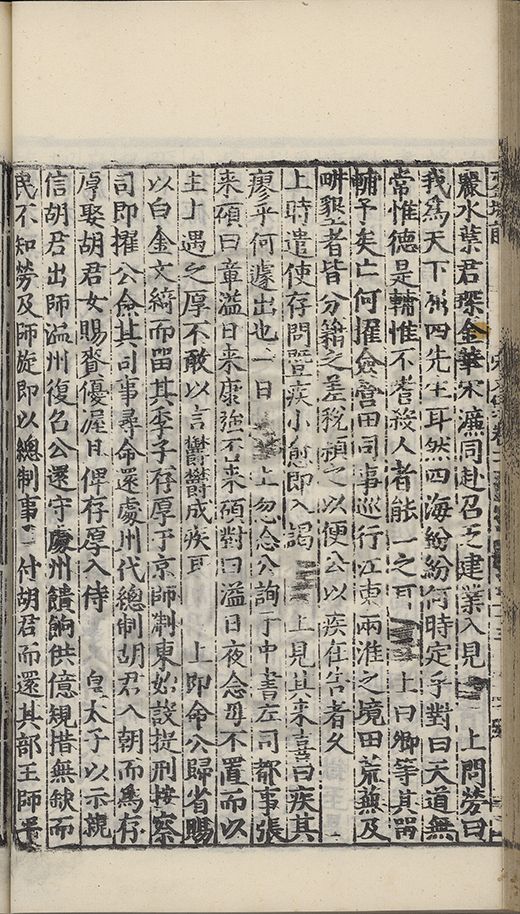 麗水葉君琛金華宋濂同赴召至建業入見 上問勞曰
我爲天下屈四先生耳然四海紛紛何時定乎對曰天道無
常惟德是輔惟不耆殺人者能一之可 上曰卿等其留
輔予矣亡何擢僉營田司事巡行江東兩淮之境田荒蕪及
畊墾者皆分籍之差稅頼之以便公以疾在告者久
上時遣使存問暨疾小愈即入謁 上見其來喜曰疾其
廖乎何遽出也一日 上忽念公詢于中書左司都事張
來碩曰章溢日來康強否來碩對曰溢日夜念母不置而以
主上遇之厚不敢以言欝欝成疾耳 上即命公歸省賜
以白金文綺而留其季子存厚于京師浙東始設提刑按察
司即擢公僉其司事尋命還處州代總制胡君入朝而爲存
厚娶胡君女賜賚優渥且俾存厚入侍 皇太子以示親
信胡君出師溫州復召公還守處州饋餉供億規措無缺而
民不知勞及師旋即以總制事 付胡君而還其部王師